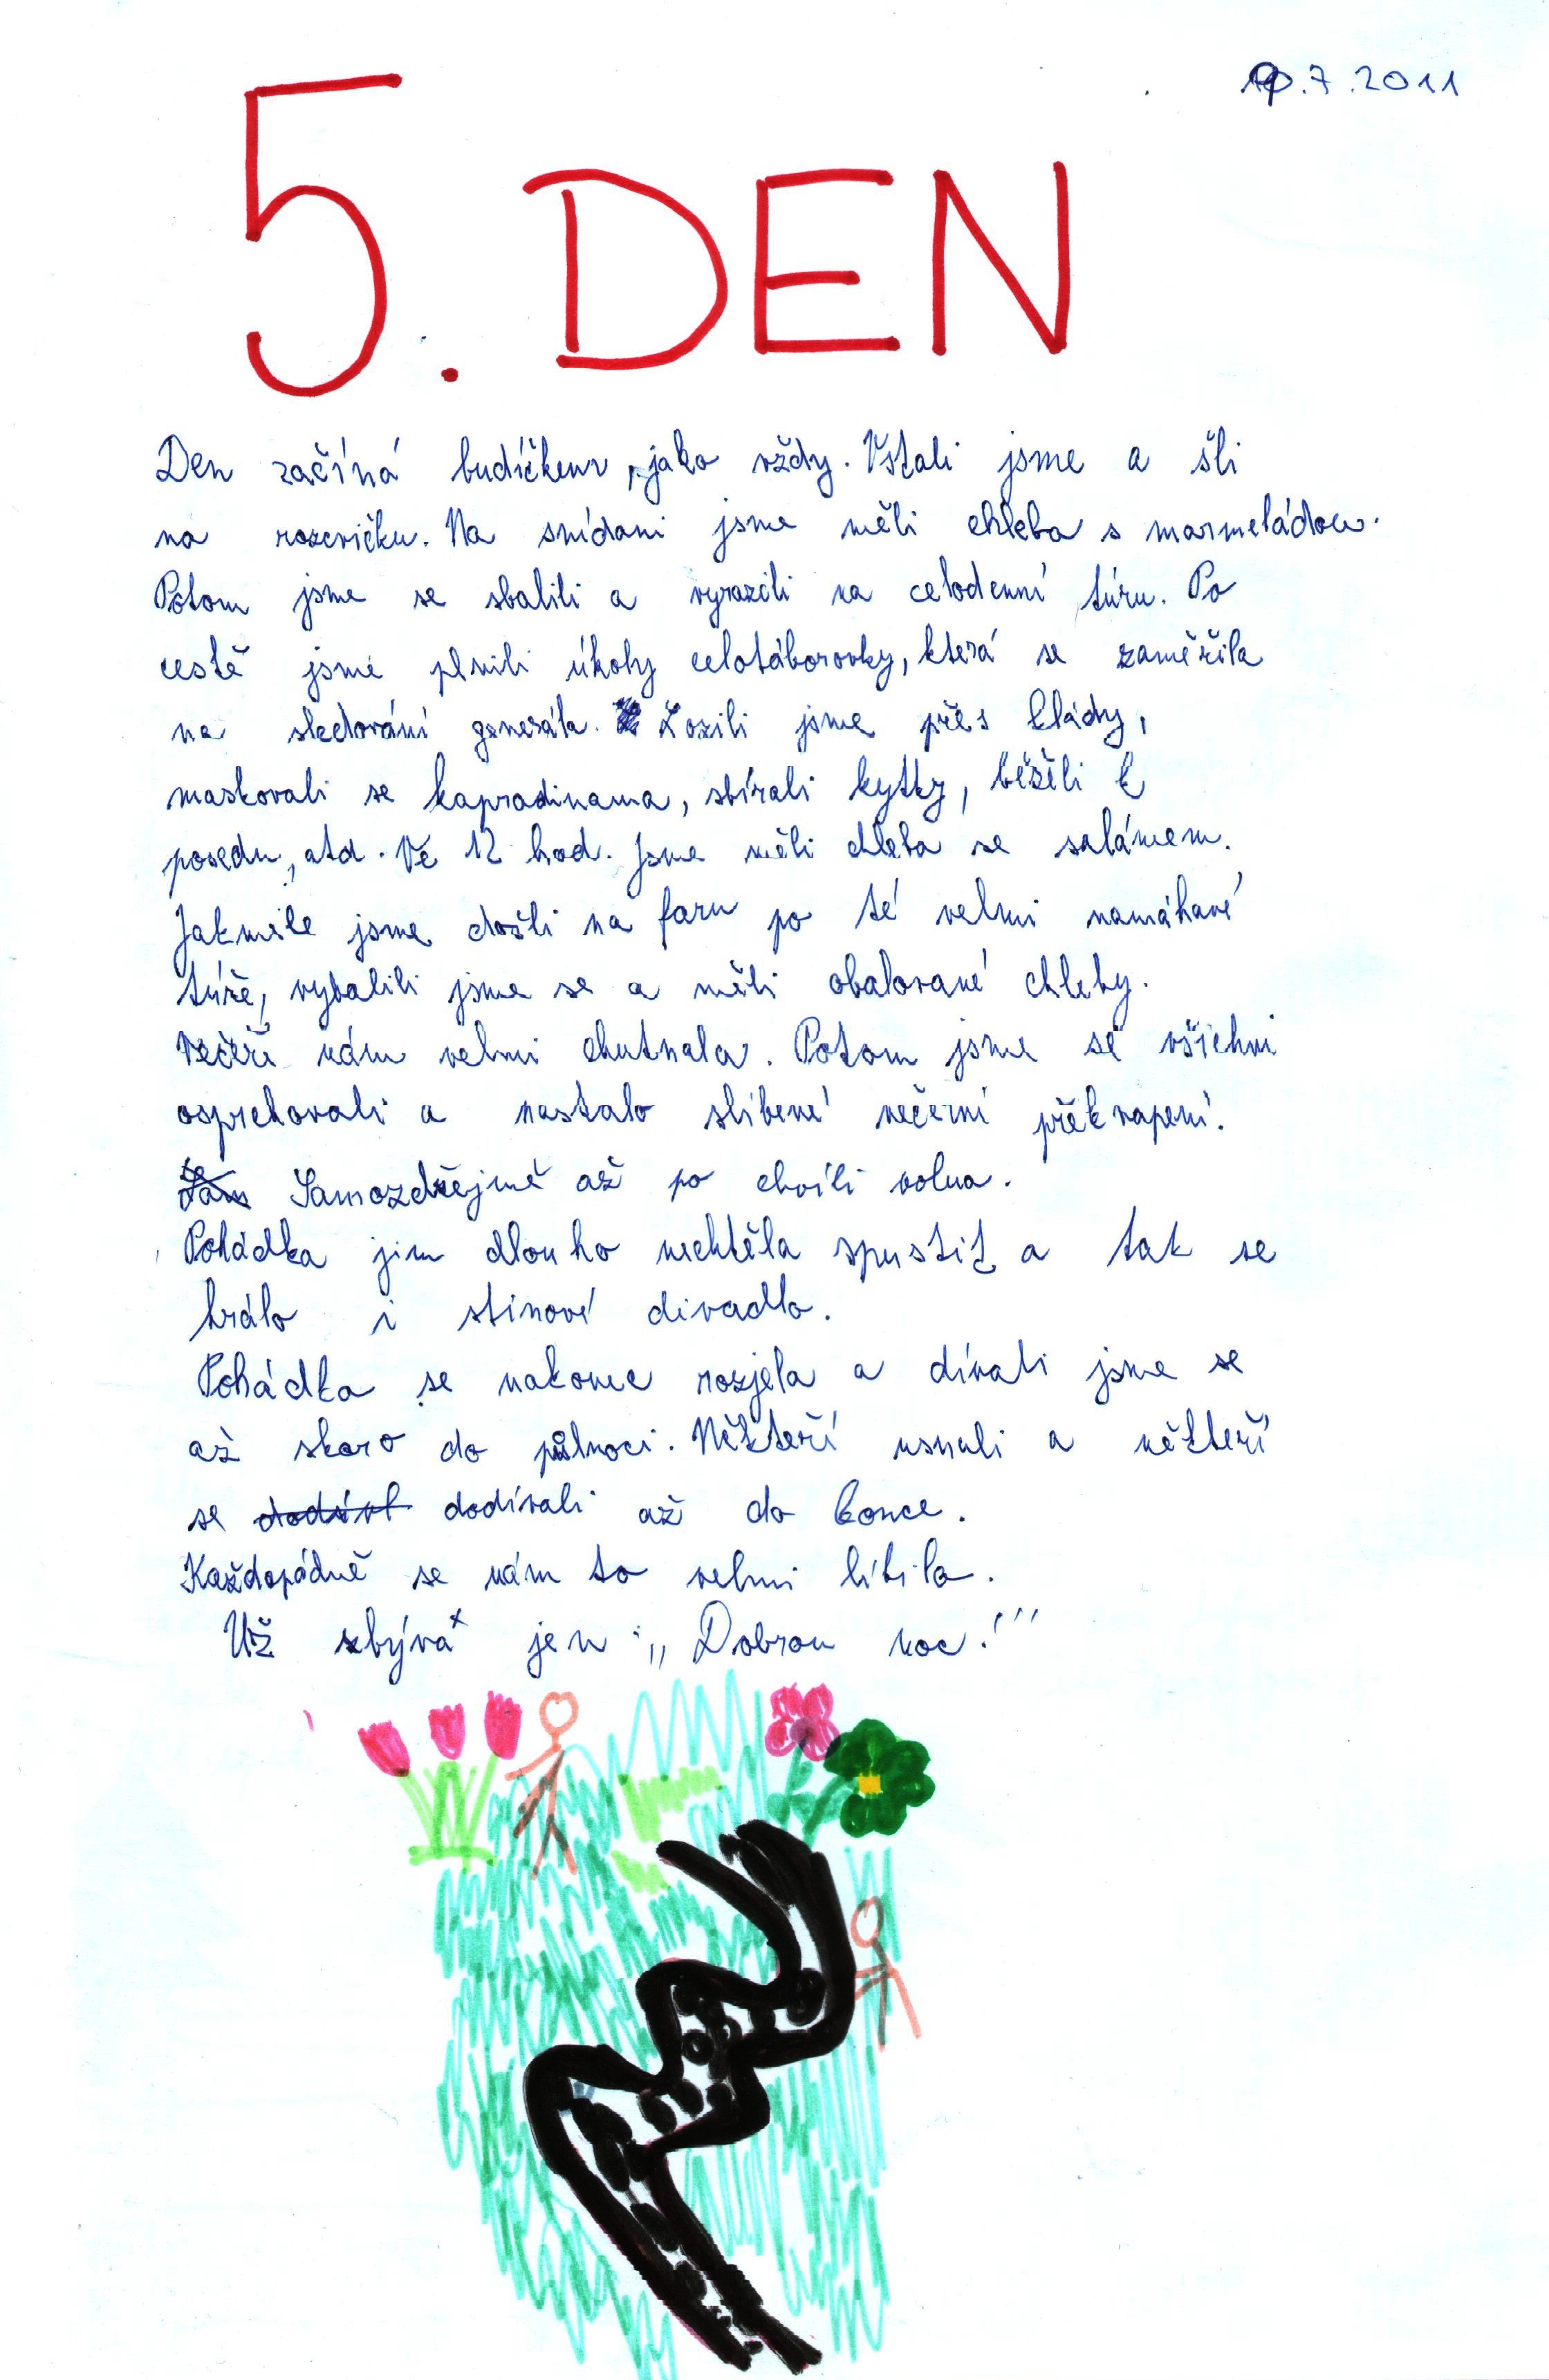 .7.2011
5. DEN
Den začíná budíčkem, jako vždy. Vstali jsme a šli
na rozcvičku. Na snídani jsme měli chleba s marmeládou.
Potom jsme se sbalili a vyrazili na celodenní túru. Po
cestě jsme plnili úkoly celotáborovky, která se zaměřila
na sledování generála. Lozili jsme přes klády,
maskovali se kapradinama, sbírali kytky, běželi k
posedu, atd. Ve 12 hod. jsme měli chleba se salámem.
Jakmile jsme došli na faru po té velmi namáhavé
túře, vybalili jsme se a měli obalované chleby.
Večeře nám velmi chutnala. Potom jsme se všichni
osprchovali a nastalo slíbené večerní překvapení.
Samozdřejmě až po chvíli volna.
Pohádka jim dlouho nechtěla spustit a tak se
hrálo i stínové divadlo.
Pohádka se nakonec rozjela a dívali jsme se
až skoro do půlnoci. Někteří usnuli a někteří
se dodívali až do konce.
Každopádně se nám to velmi líbila.
Už zbývá jen: „Dobrou noc!"